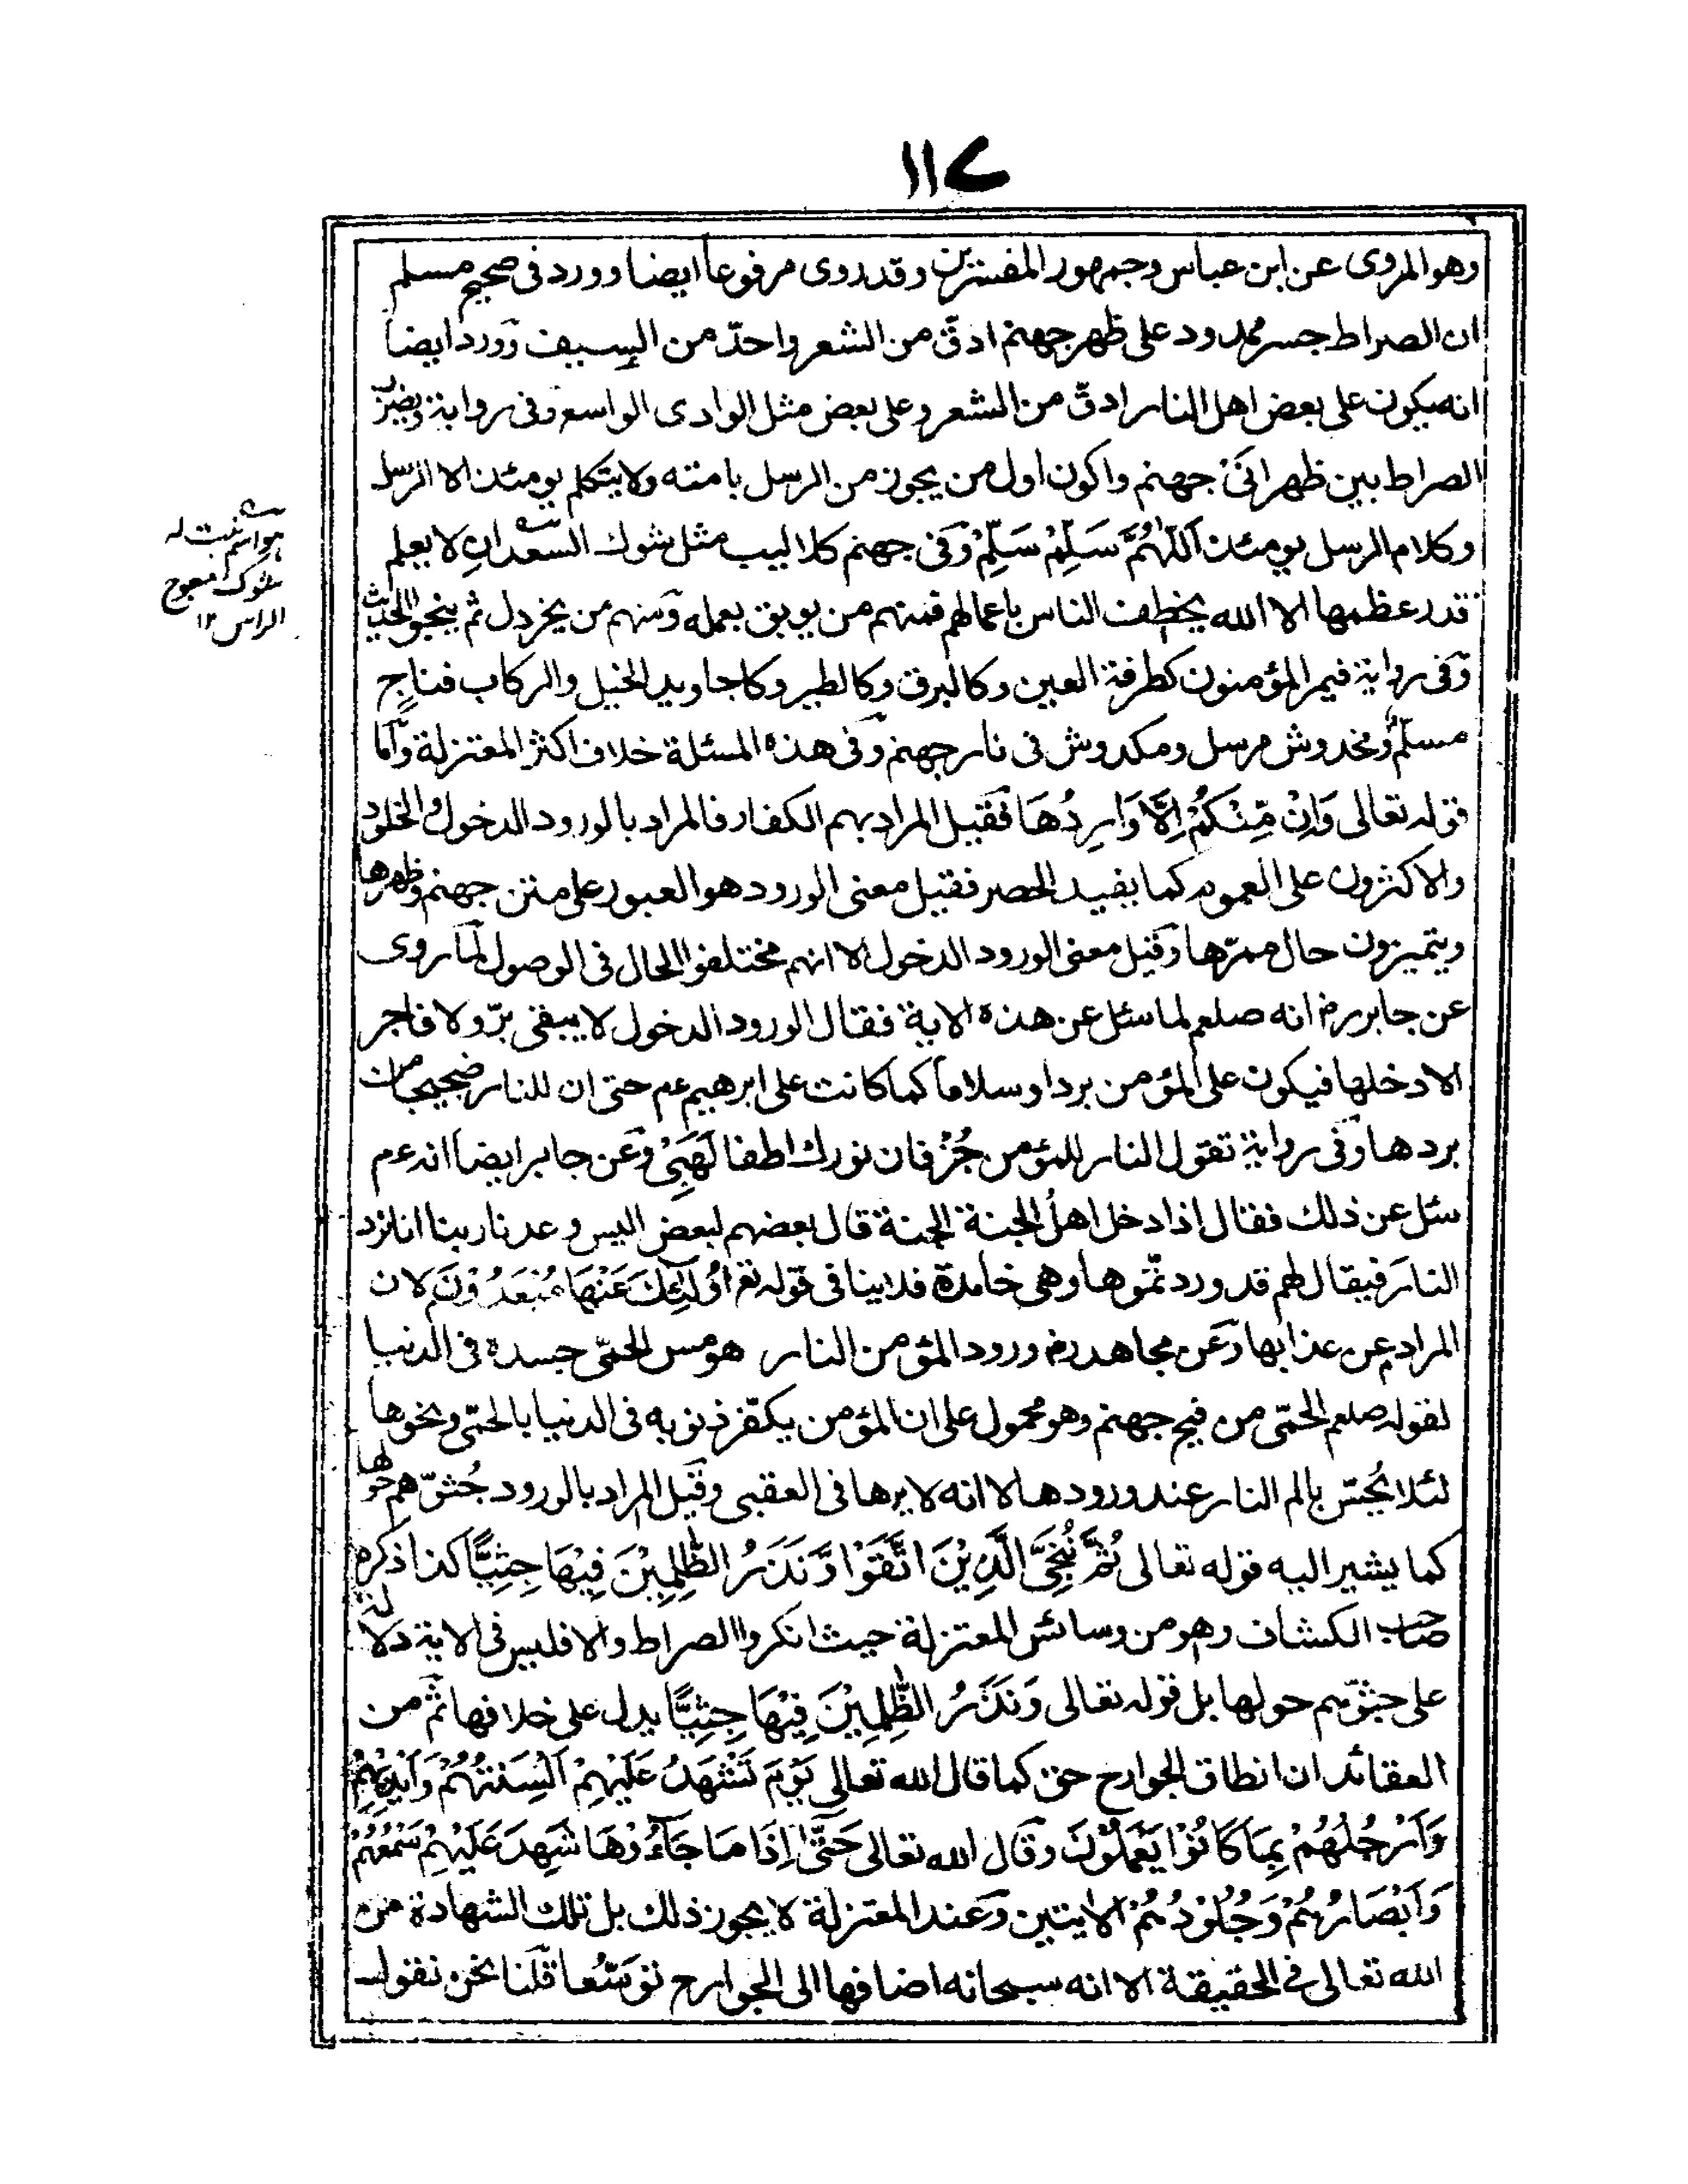 ١١٧
وهو المروى عن ابن عباس وجمهور المفسرين وقد روى مرفوعا ايضا وورد فى صحيح مسلم
ان الصراط جسر ممدود على ظهر جهنم ادقّ من الشعر واحدّ من السيف وورد ايضا
انه يكون على بعض اهل النار ادقّ من الشعر وعلى بعض مثل الوادى الواسع وفى رواية ويضرب
الصراط بين ظهرانَىْ جهنم واكون اول من يجوز من الرسل بامته ولا يتكلم يومئذ الا الرسل
وكلام الرسل يومئذ اَللّٰهُمَّ سَلِّمْ سَلِّمْ وفى جهنم كلاليب مثل شوك السعدانِ لا يعلم
قدر عظمها الا الله يخطف الناس باعمالهم فمنهم من يوبق بعمله ومنهم من يخردل ثم ينجو الحديث
وفى رواية فيمر المؤمنون كطرفة العين وكالبرق وكالطير وكاجاويد الخيل والركاب فناجٍ
مسلّمٌ ومخدوش مرسل ومكدوش فى نار جهنم وفى هذه المسئلة خلاف اكثر المعتزلة وأما
قوله تعالى وَاِنْ مِّنْكُمْ اِلَّا وَارِدُهَا فقيل المراد بهم الكفار فالمراد بالورود الدخول والخلود
والاكثرون على العموم كما يفيد الحصر فقيل معنى الورود هو العبور على متن جهنم وظهرها
ويتميزون حال ممرّها وقيل معنى الورود الدخول الا انهم مختلفوا الحال فى الوصول لما روى
عن جابر رض انه صلعم لما سئل عن هذه الاية فقال الورود الدخول لا يبقى برّ ولا فاجر
الا دخلها فيكون على المؤمن بردا وسلاما كما كانت على ابرهيم عم حتى ان للنار ضجيجا من
بردها وفى رواية تقول النار للمؤمن جُزْ فان نورك اطفا لَهَبِىْ وعن جابر ايضا انه عم
سئل عن ذلك فقال اذا دخل اهلُ الجنة الجنة قال بعضهم لبعض اليس وعدنا ربنا انا نرد
النارَ فيقال لهم قد وردتّموها وهى خامدة فلا ينافى قوله تع اُولٰٓئِكَ عَنْهَا مُبْعَدُوْنَ لان
المراد عن عذابها وعن مجاهد رض ورود المؤمن النار هو مس الحمّى جسده فى الدنيا
لقوله صلعم الحمّى من فيح جهنم وهو محمول على ان المؤمن يكفّر ذنوبه فى الدنيا بالحمّى ونحوها
لئلا يُحسّ بالم النار عند ورودها لا انه لا يرها فى العقبى وقيل المراد بالورود جُثوّهم حولها
كما يشير اليه قوله تعالى ثُمَّ نُنَجِّى الَّذِيْنَ اتَّقَوْا وَّنَذَرُ الظّٰلِمِيْنَ فِيْهَا جِثِيًّا كذا ذكره
صاحب الكشاف وهو من وسائس المعتزلة حيث انكروا الصراط والا فليس فى الاية دلالة
على جثوّهم حولها بل قوله تعالى وَنَذَرُ الظّٰلِمِيْنَ فِيْهَا جِثِيًّا يدل على خلافها ثم من
العقائد ان انطاق الجوارح حق كما قال الله تعالى يَوْمَ تَشْهَدُ عَلَيْهِمْ اَلْسِنَتُهُمْ وَاَيْدِيْهِمْ
وَاَرْجُلُهُمْ بِمَا كَانُوْا يَعْمَلُوْنَ وقال الله تعالى حَتّٰى اِذَا مَا جَآءُوْهَا شَهِدَ عَلَيْهِمْ سَمْعُهُمْ
وَاَبْصَارُهُمْ وَجُلُوْدُهُمْ الايتين وعند المعتزلة لا يجوز ذلك بل تلك الشهادة من
الله تعالى فى الحقيقة الا انه سبحانه اضافها الى الجوارح توسّعا قلنا نحن نقول
هو اسم نبت له
شوك معوج
الراس ١٢